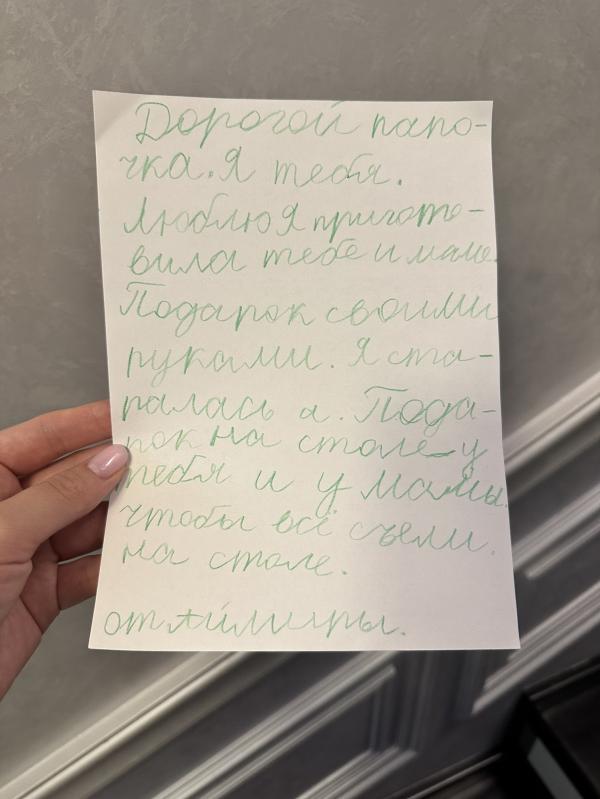 Дорогой папо-
чка. Я тебя.
Люблю Я пригото-
вила тебе и маме.
Подарок своими
руками. Я ста-
ралась а. Пода-
рок на столе у
тебя и у мамы.
чтобы всё съели.
на столе.
от